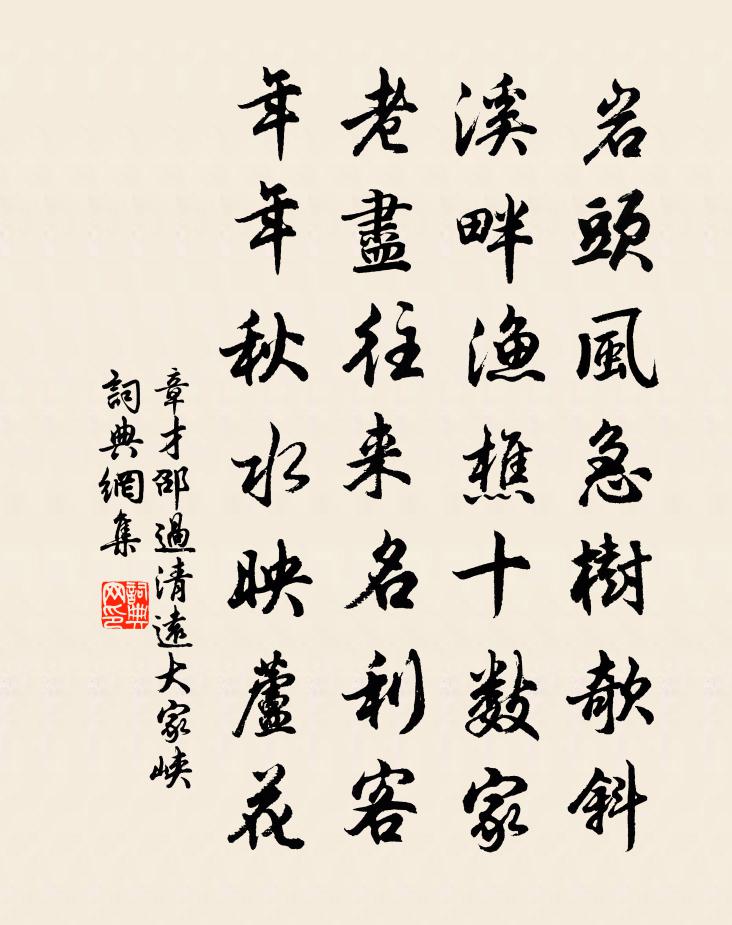 岩頭風急樹欹斜
溪畔漁樵十數家
老盡往来名利客
年年秋水映蘆花
章才邵過清遠大家峽
詞典網集
詞典网印